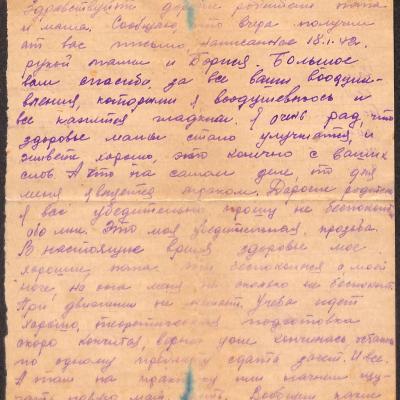 Здравствуйте дорогие родители папа
и мама. Сообщаю, что вчера получил
от вас письмо, написанное 18.1.42г.
рукой мамы и Бориса. Большое
вам спасибо, за все ваши воодуше-
вления, которыми я воодушевляюсь и
все кажется гладким. Я очень рад, что
здоровье мамы стало улучшатся, и
живете хорошо, это конечно с ваших
слов. А что на самом деле, то для
меня является мраком. Дорогие родители
я вас убедительно прошу не беспокоит.
обо мне. Это моя убедительная, прозьба.
В настоящие время здоровье мое
хорошие, папа
ноге, но нога меня не сколько не беспокоит.
При движении не мешает. Учеба идет
хорошо, теоретическая подготовка
скоро кончится, верно уже кончилась осталось
по одному предмету сдать зачет. И все.
А там на практику